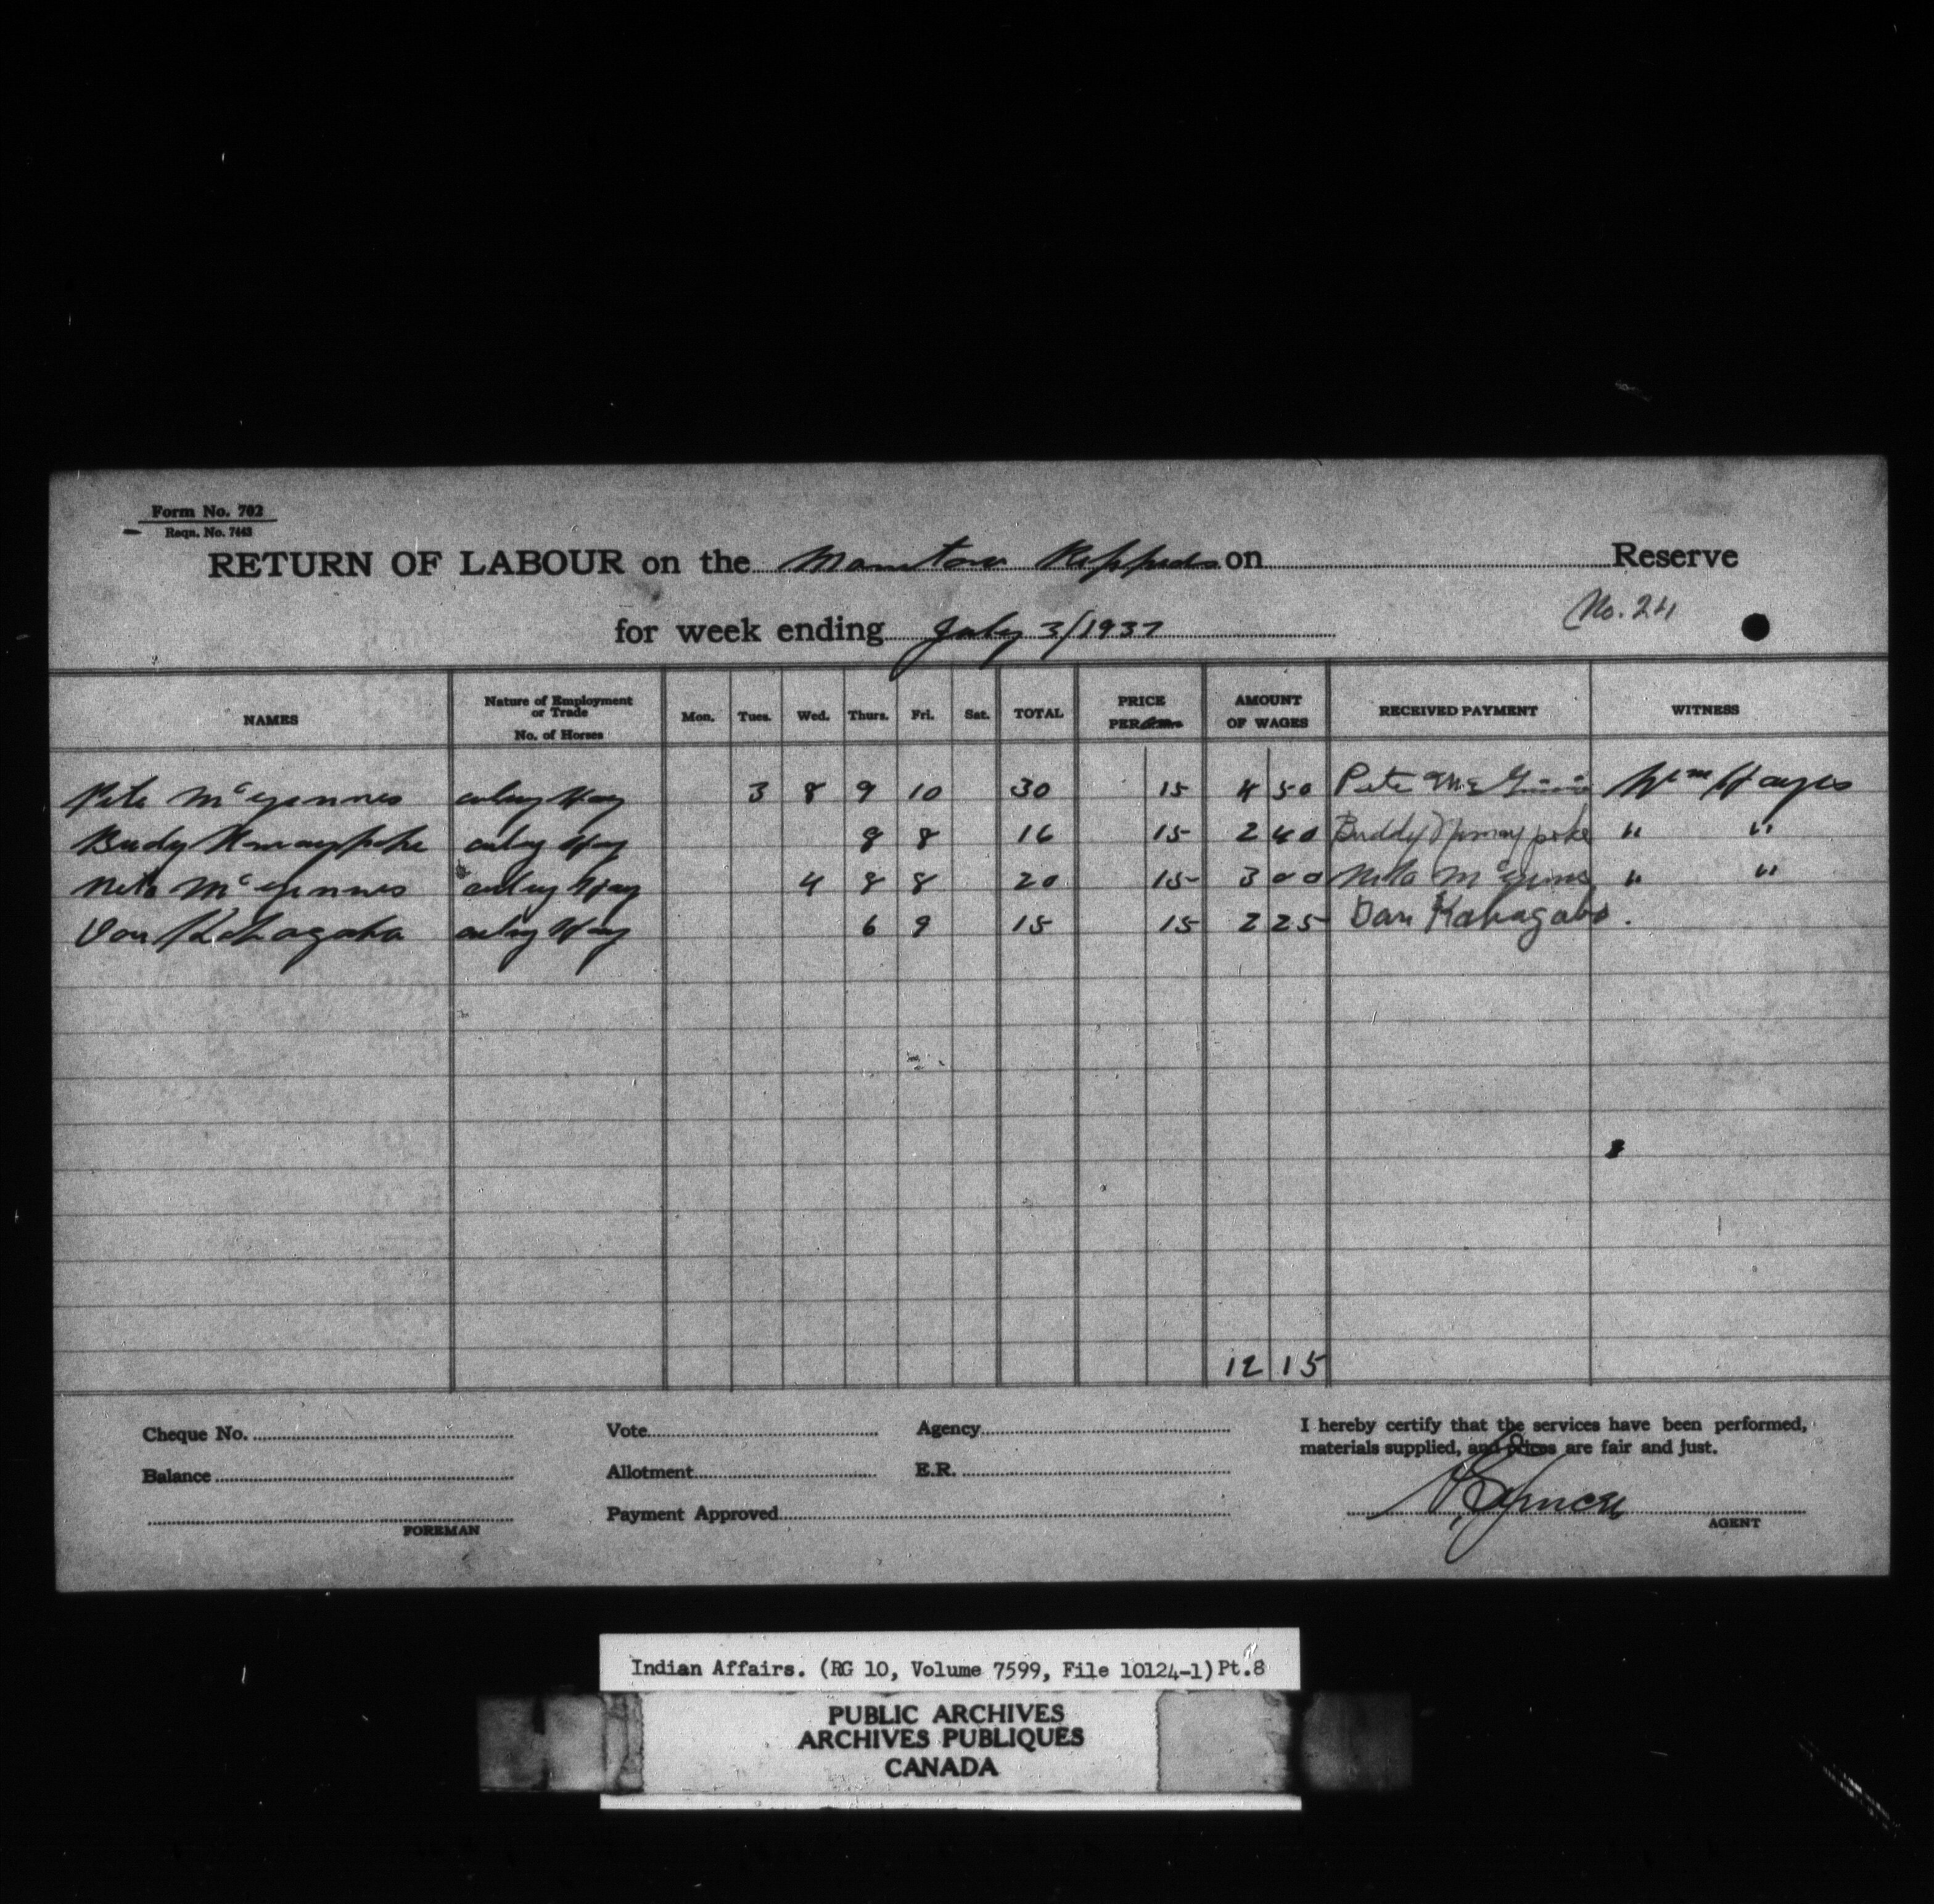 Form No. 702
Reqn. No. 7443
RETURN OF LABOUR on the Manitou Rappids on Reserve
No. 24
for week ending July 3/1937
NAMES Nature of Employment or Trade No. of Horses Mon. Tues. Wed. Thurs. Fri. Sat. TOTAL PRICE PER AMOUNT OF WAGES RECEIVED PAYMENT WITNESS
Pete McGinnes Hay 3 8 9 10 30 15 4 50 Pete Wm Hayes
Budy Hay 8 8 16 15 2 40 Buddy " "
McGinnes Hay 4 8 8 20 15 3 00 " "
Kahagaba Hay 6 9 15 15 2 25 Dan Kabagabo.
12 15
Cheque No.
Balance
FOREMAN
Vote
Allotment
Payment Approved
Agency
E.R.
I hereby certify that the services have been performed,
materials supplied, and prices are fair and just.
Spencer
AGENT
Indian Affairs. (RG 10, Volume 7599, File 10124-1) Pt.8
PUBLIC ARCHIVES
ARCHIVES PUBLIQUES
CANADA